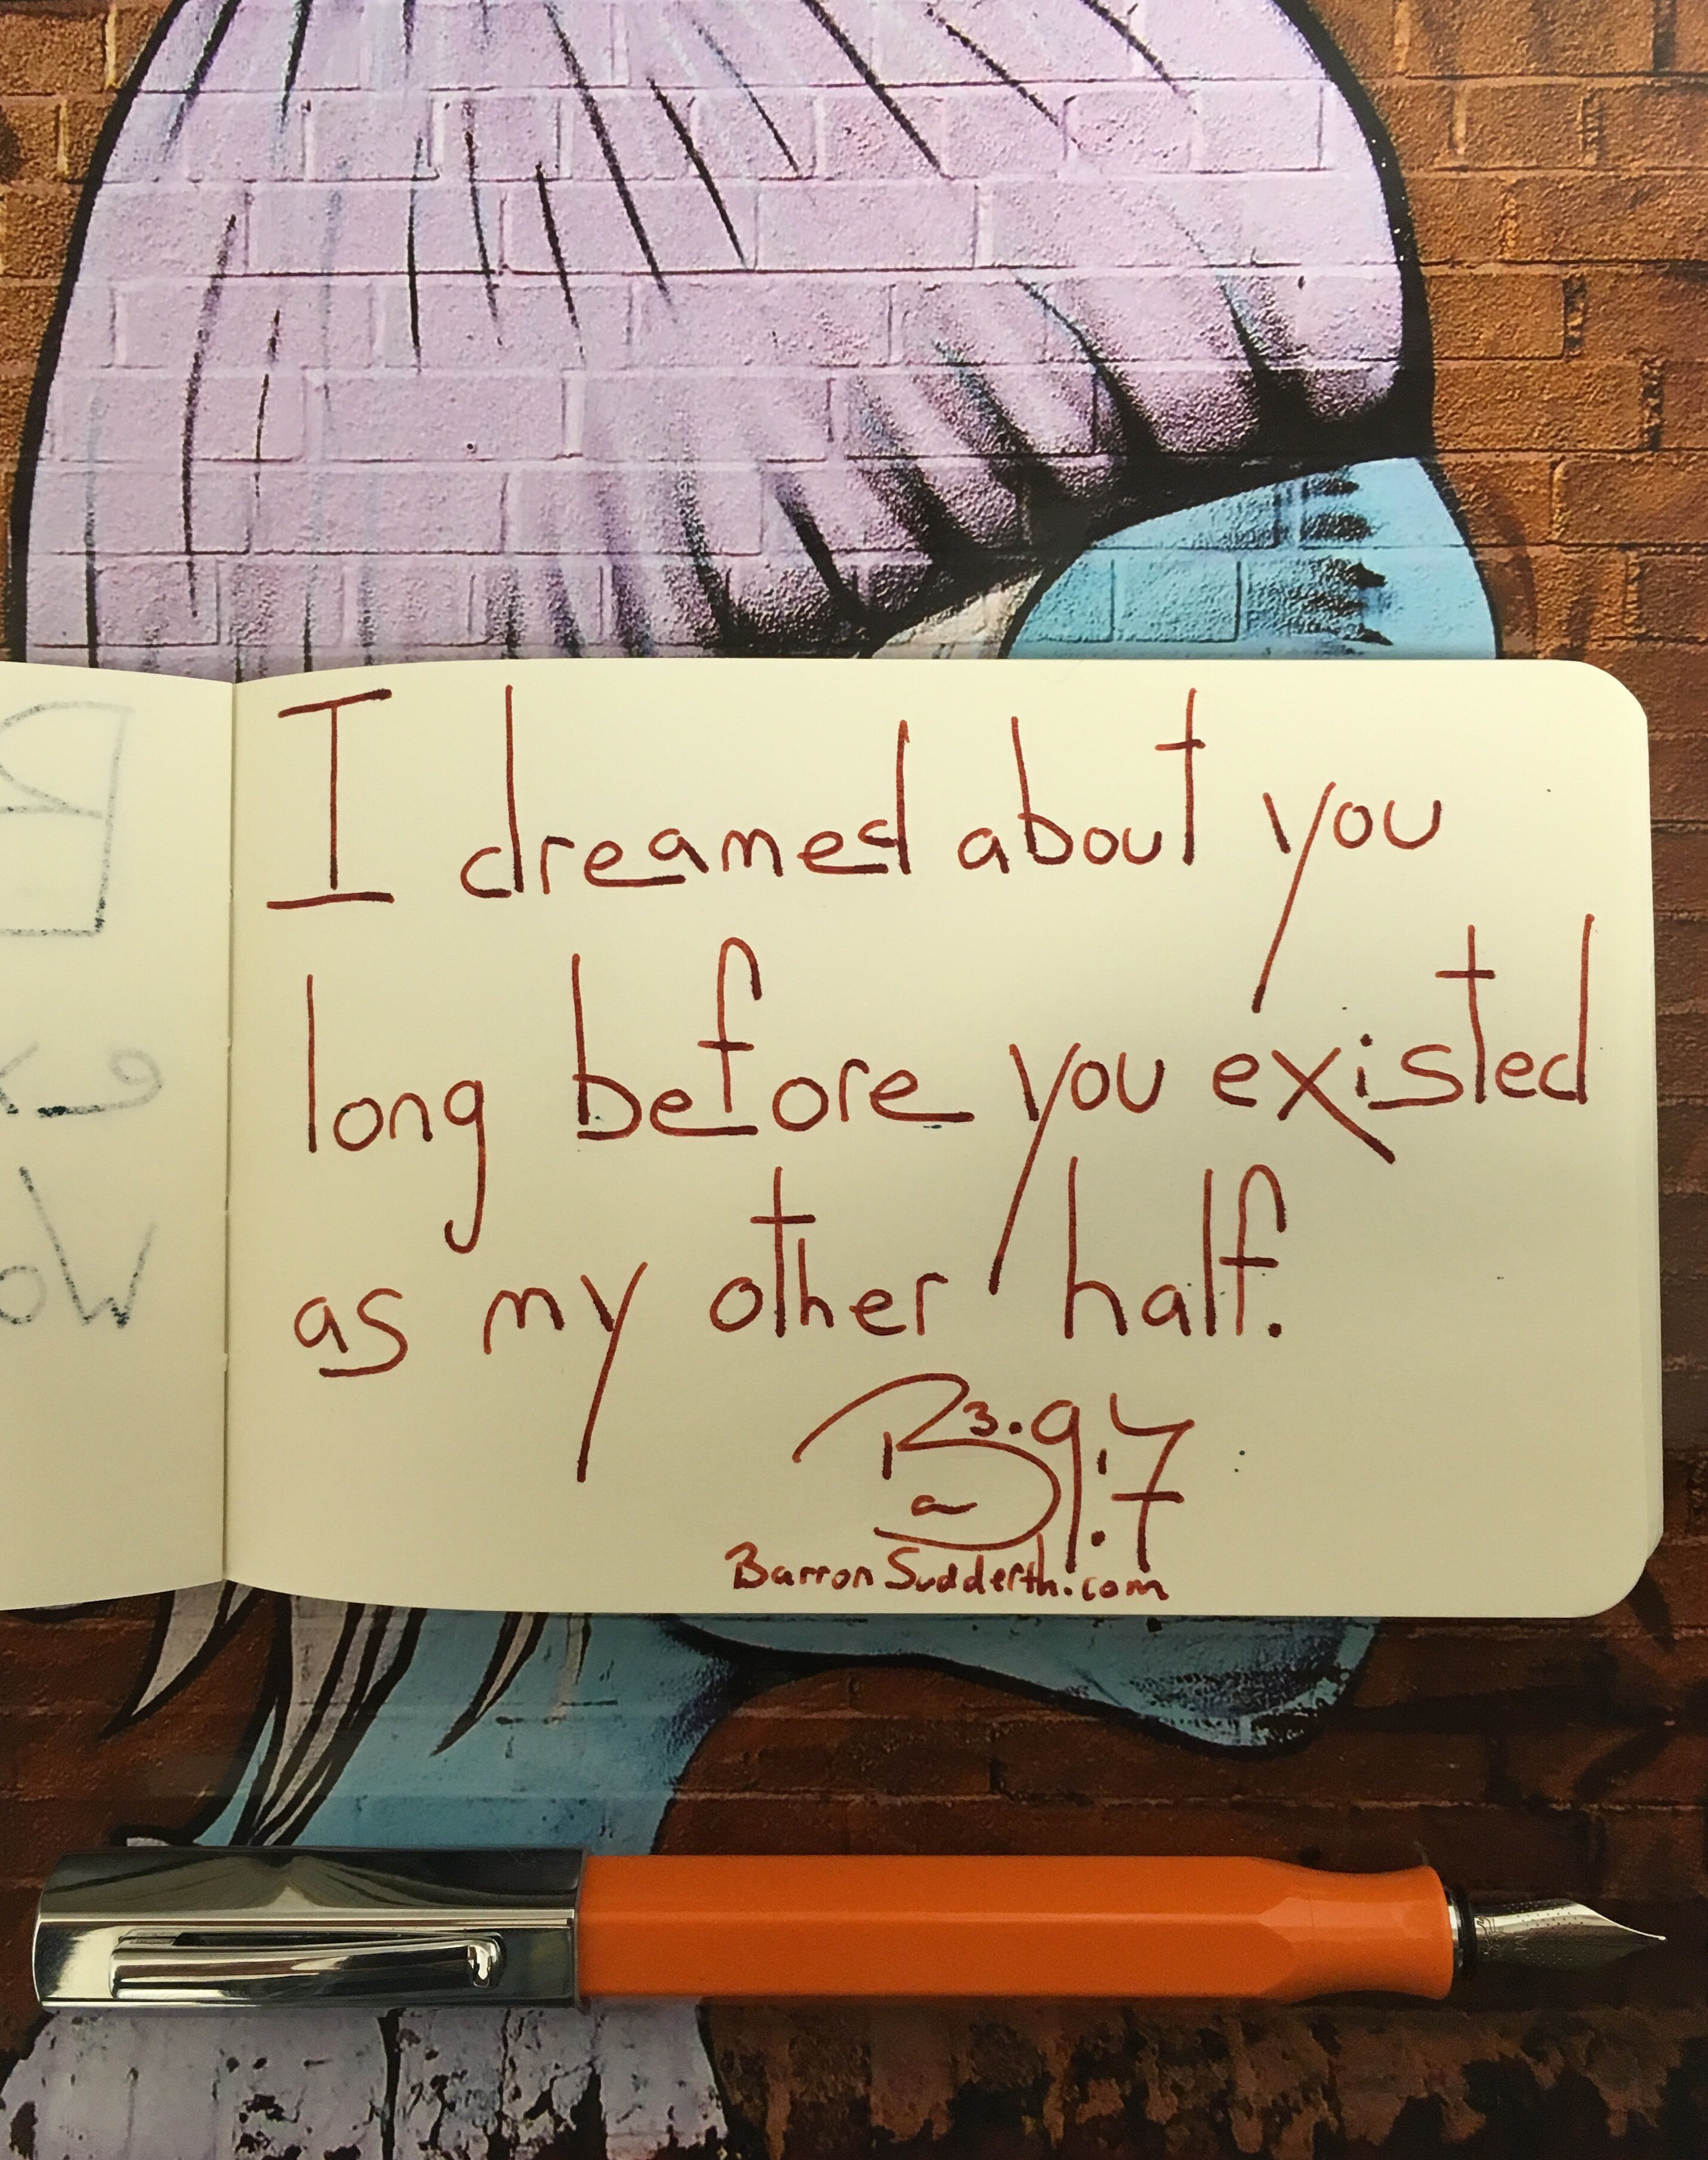 I dreamed about you
long before you existed
as my other half.
BarronSudderth.com